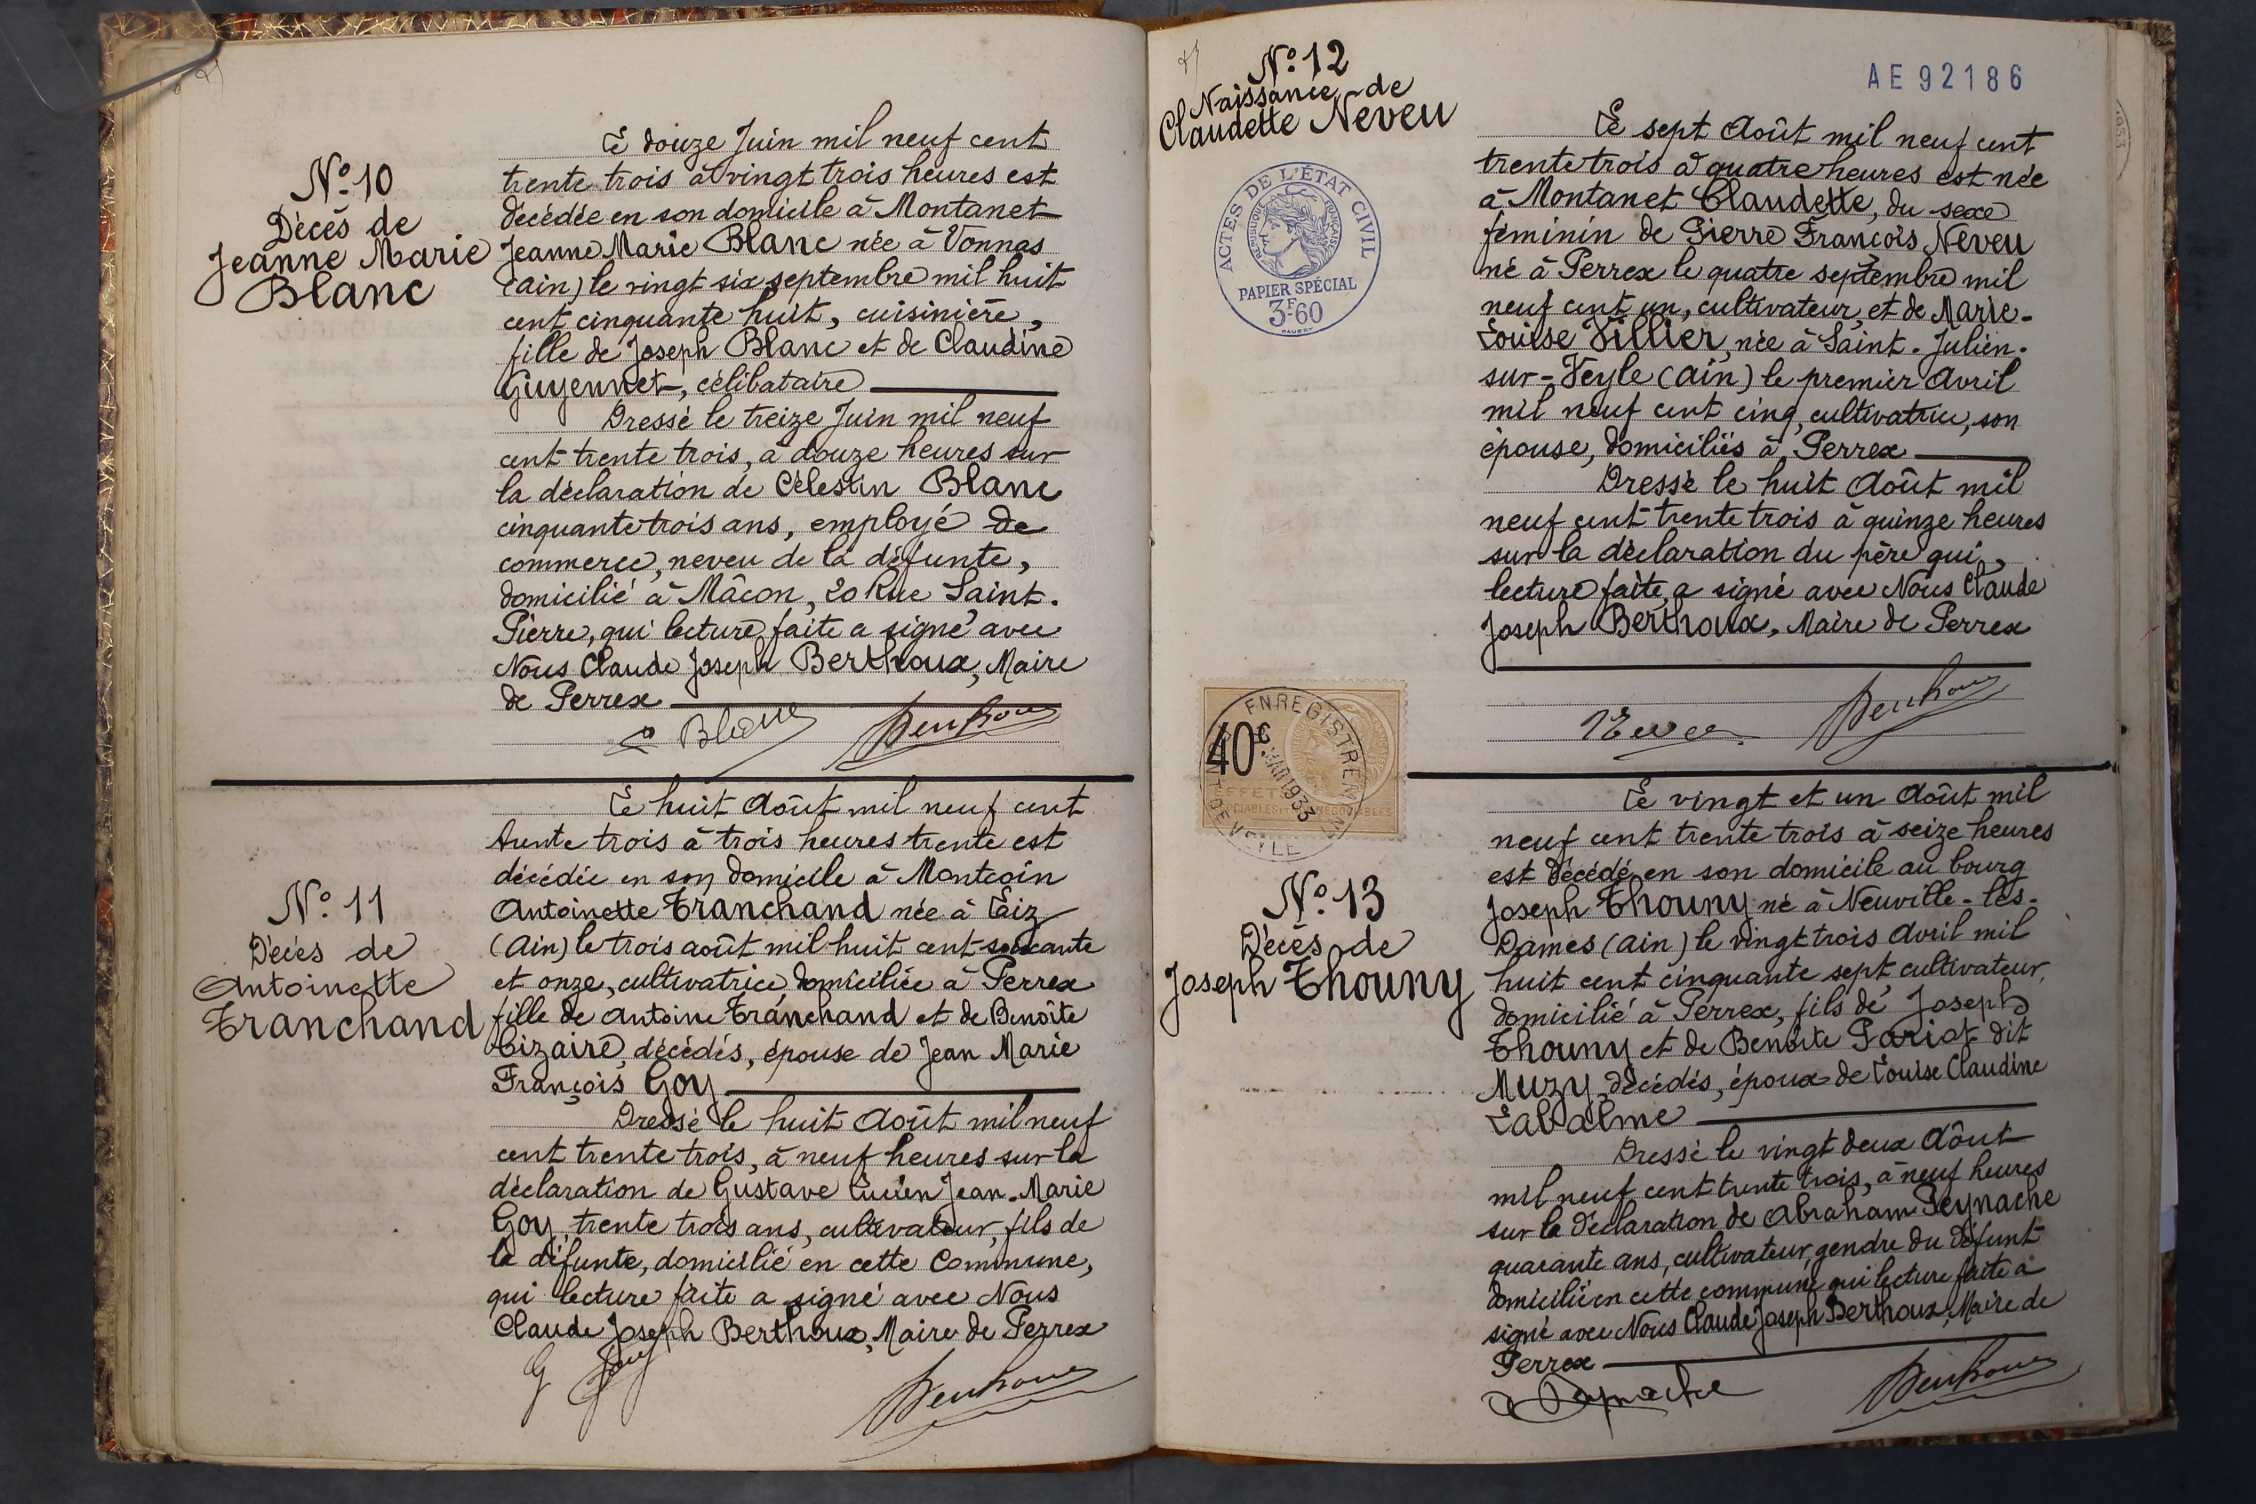 Nº 10
Décès de
Jeanne Marie
Blanc
Le douze Juin mil neuf cent
trente trois à vingt trois heures est
décédée en son domicile à Montanet
Jeanne Marie Blanc née à Vonnas
(ain) le vingt six septembre mil huit
cent cinquante huit, cuisinière,
fille de Joseph Blanc et de Claudine
Guyennet, célibataire
Dressé le treize Juin mil neuf
cent trente trois, à douze heures sur
la déclaration de Célestin Blanc
cinquante trois ans, employé de
commerce, neveu de la défunte,
domicilié à Mâcon, 20 Rue Saint-
Pierre, qui lecture faite a signé avec
Nous Claude Joseph Berthoux, Maire
de Perrex
Blanc Berthoux
Nº 11
Décès de
Antoinette
Tranchand
Le huit Août mil neuf cent
trente trois à trois heures trente est
décédée en son domicile à Montcoin
Antoinette Tranchand née à Laiz
(Ain) le trois août mil huit cent soixante
et onze, cultivatrice, domiciliée à Perrex
fille de Antoine Tranchand et de Benoîte
Cizaire, décédés, épouse de Jean Marie
François Goy
Dressé le huit Août mil neuf
cent trente trois, à neuf heures sur la
déclaration de Gustave Lucien Jean-Marie
Goy, trente trois ans, cultivateur, fils de
la défunte, domicilié en cette Commune,
qui lecture faite a signé avec Nous
Claude Joseph Berthoux, Maire de Perrex
G Goy Berthoux
Nº 12
Naissance de
Claudette Neveu
AE92186
ACTES DE L'ÉTAT CIVIL
RÉPUBLIQUE FRANÇAISE
PAPIER SPÉCIAL
3F60
Le sept Août mil neuf cent
trente trois à quatre heures est née
à Montanet Claudette, du sexe
féminin de Pierre François Neveu
né à Perrex le quatre septembre mil
neuf cent un, cultivateur, et de Marie-
Louise Villier, née à Saint-Julien-
sur-Veyle (ain) le premier Avril
mil neuf cent cinq, cultivatrice, son
épouse, domiciliés à Perrex
Dressé le huit Août mil
neuf cent trente trois à quinze heures
sur la déclaration du père qui,
lecture faite, a signé avec Nous Claude
Joseph Berthoux, Maire de Perrex
Neveu Berthoux
ENREGISTREMENT
40c
MAR 1933
EFFETS
VEYLE
Nº 13
Décès de
Joseph Thouny
Le vingt et un Août mil
neuf cent trente trois à seize heures
est décédé en son domicile au bourg
Joseph Thouny né à Neuville-les-
Dames (ain) le vingt trois Avril mil
huit cent cinquante sept, cultivateur,
domicilié à Perrex, fils de Joseph
Thouny et de Benoîte Pariat dit
Muzy, décédés, époux de Louise Claudine
Labalme
Dressé le vingt deux Août
mil neuf cent trente trois, à neuf heures
sur la déclaration de Abraham Peynache
quarante ans, cultivateur, gendre du défunt
domicilié en cette commune qui lecture faite a
signé avec Nous Claude Joseph Berthoux, Maire de
Perrex
Peynache Berthoux